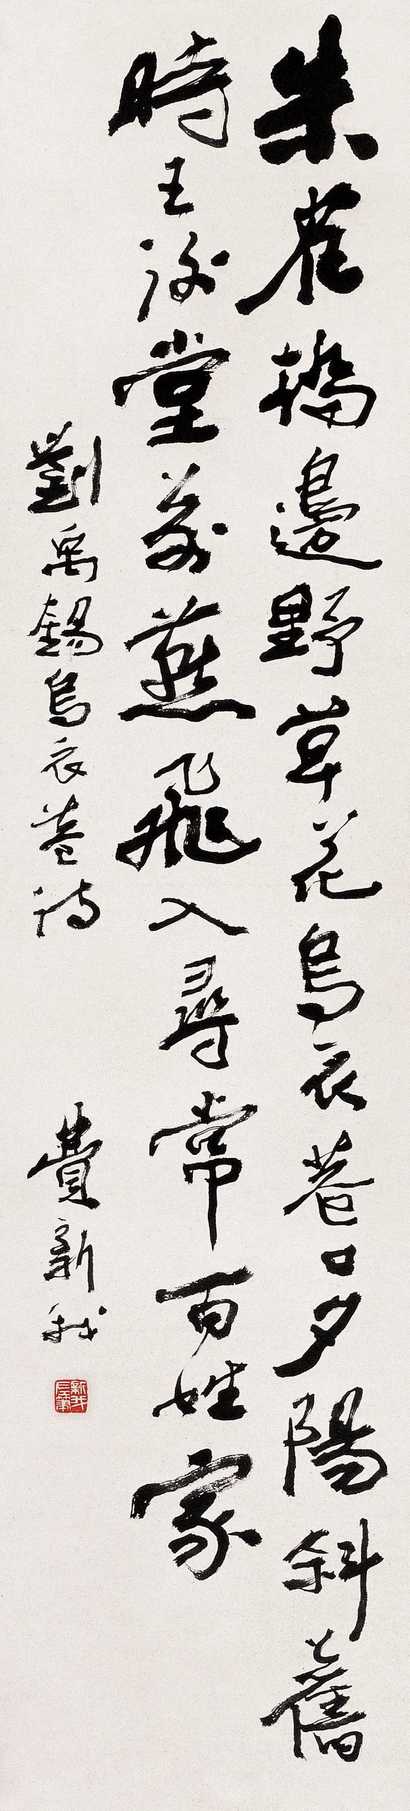 朱雀橋邊野草花烏衣巷口夕陽斜舊
時王謝堂前燕飛入尋常百姓家
劉禹錫烏衣巷詩
費新我
新我左筆